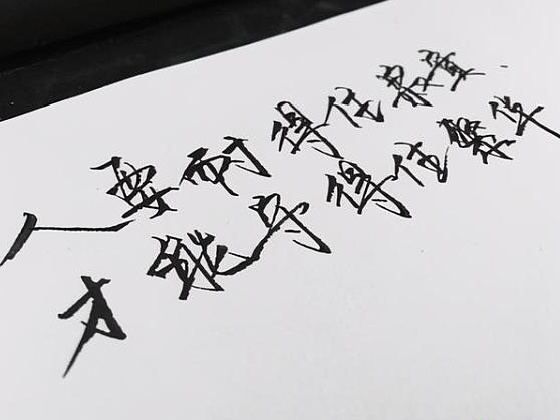 人要耐得住寂寞
才能守得住繁华